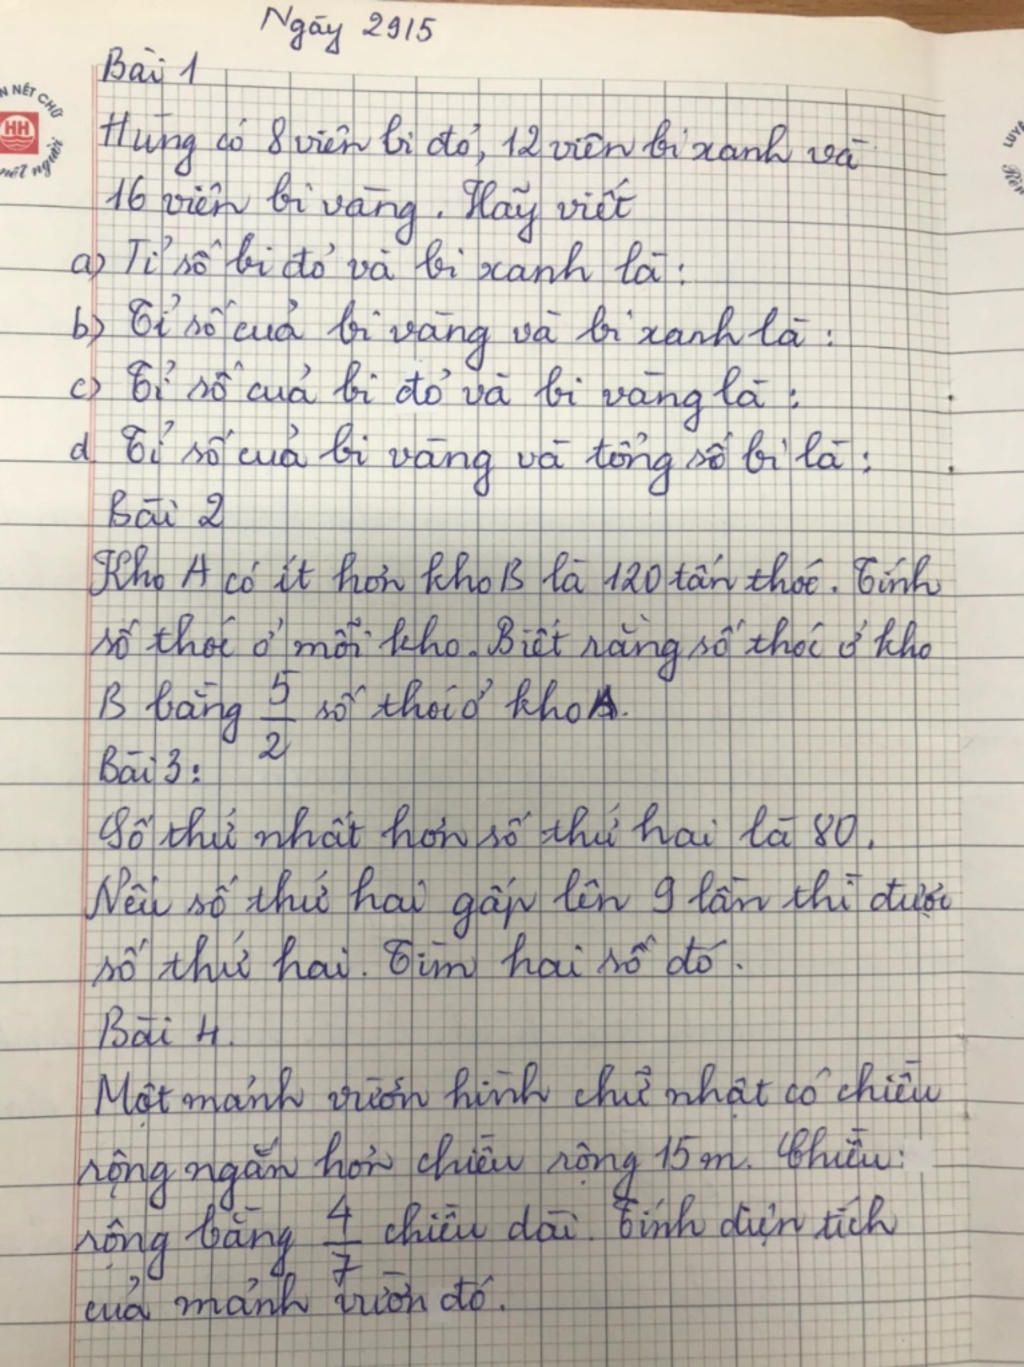 Ngày 2915
Bài 1
N NÉT CHỮ
HH
nết người
LUYỆ
Hùng có 8 viên bi đỏ, 12 viên bi xanh và
16 viên bi vàng. Hãy viết
a) Tỉ số bi đỏ và bi xanh là:
b) Tỉ số của bi vàng và bi xanh là:
c) Tỉ số của bi đỏ và bi vàng là:
d Tỉ số của bi vàng và tổng số bi là:
Bài 2
Kho A có ít hơn kho B là 120 tấn thóc. Tính
số thóc ở mỗi kho. Biết rằng số thóc ở kho
B bằng 5/2 số thóc ở kho A.
Bài 3:
Số thứ nhất hơn số thứ hai là 80.
Nếu số thứ hai gấp lên 9 lần thì được
số thứ hai. Tìm hai số đó.
Bài 4.
Một mảnh vườn hình chữ nhật có chiều
rộng ngắn hơn chiều rộng 15 m. Chiều
rộng bằng 4/7 chiều dài. Tính diện tích
của mảnh vườn đó.